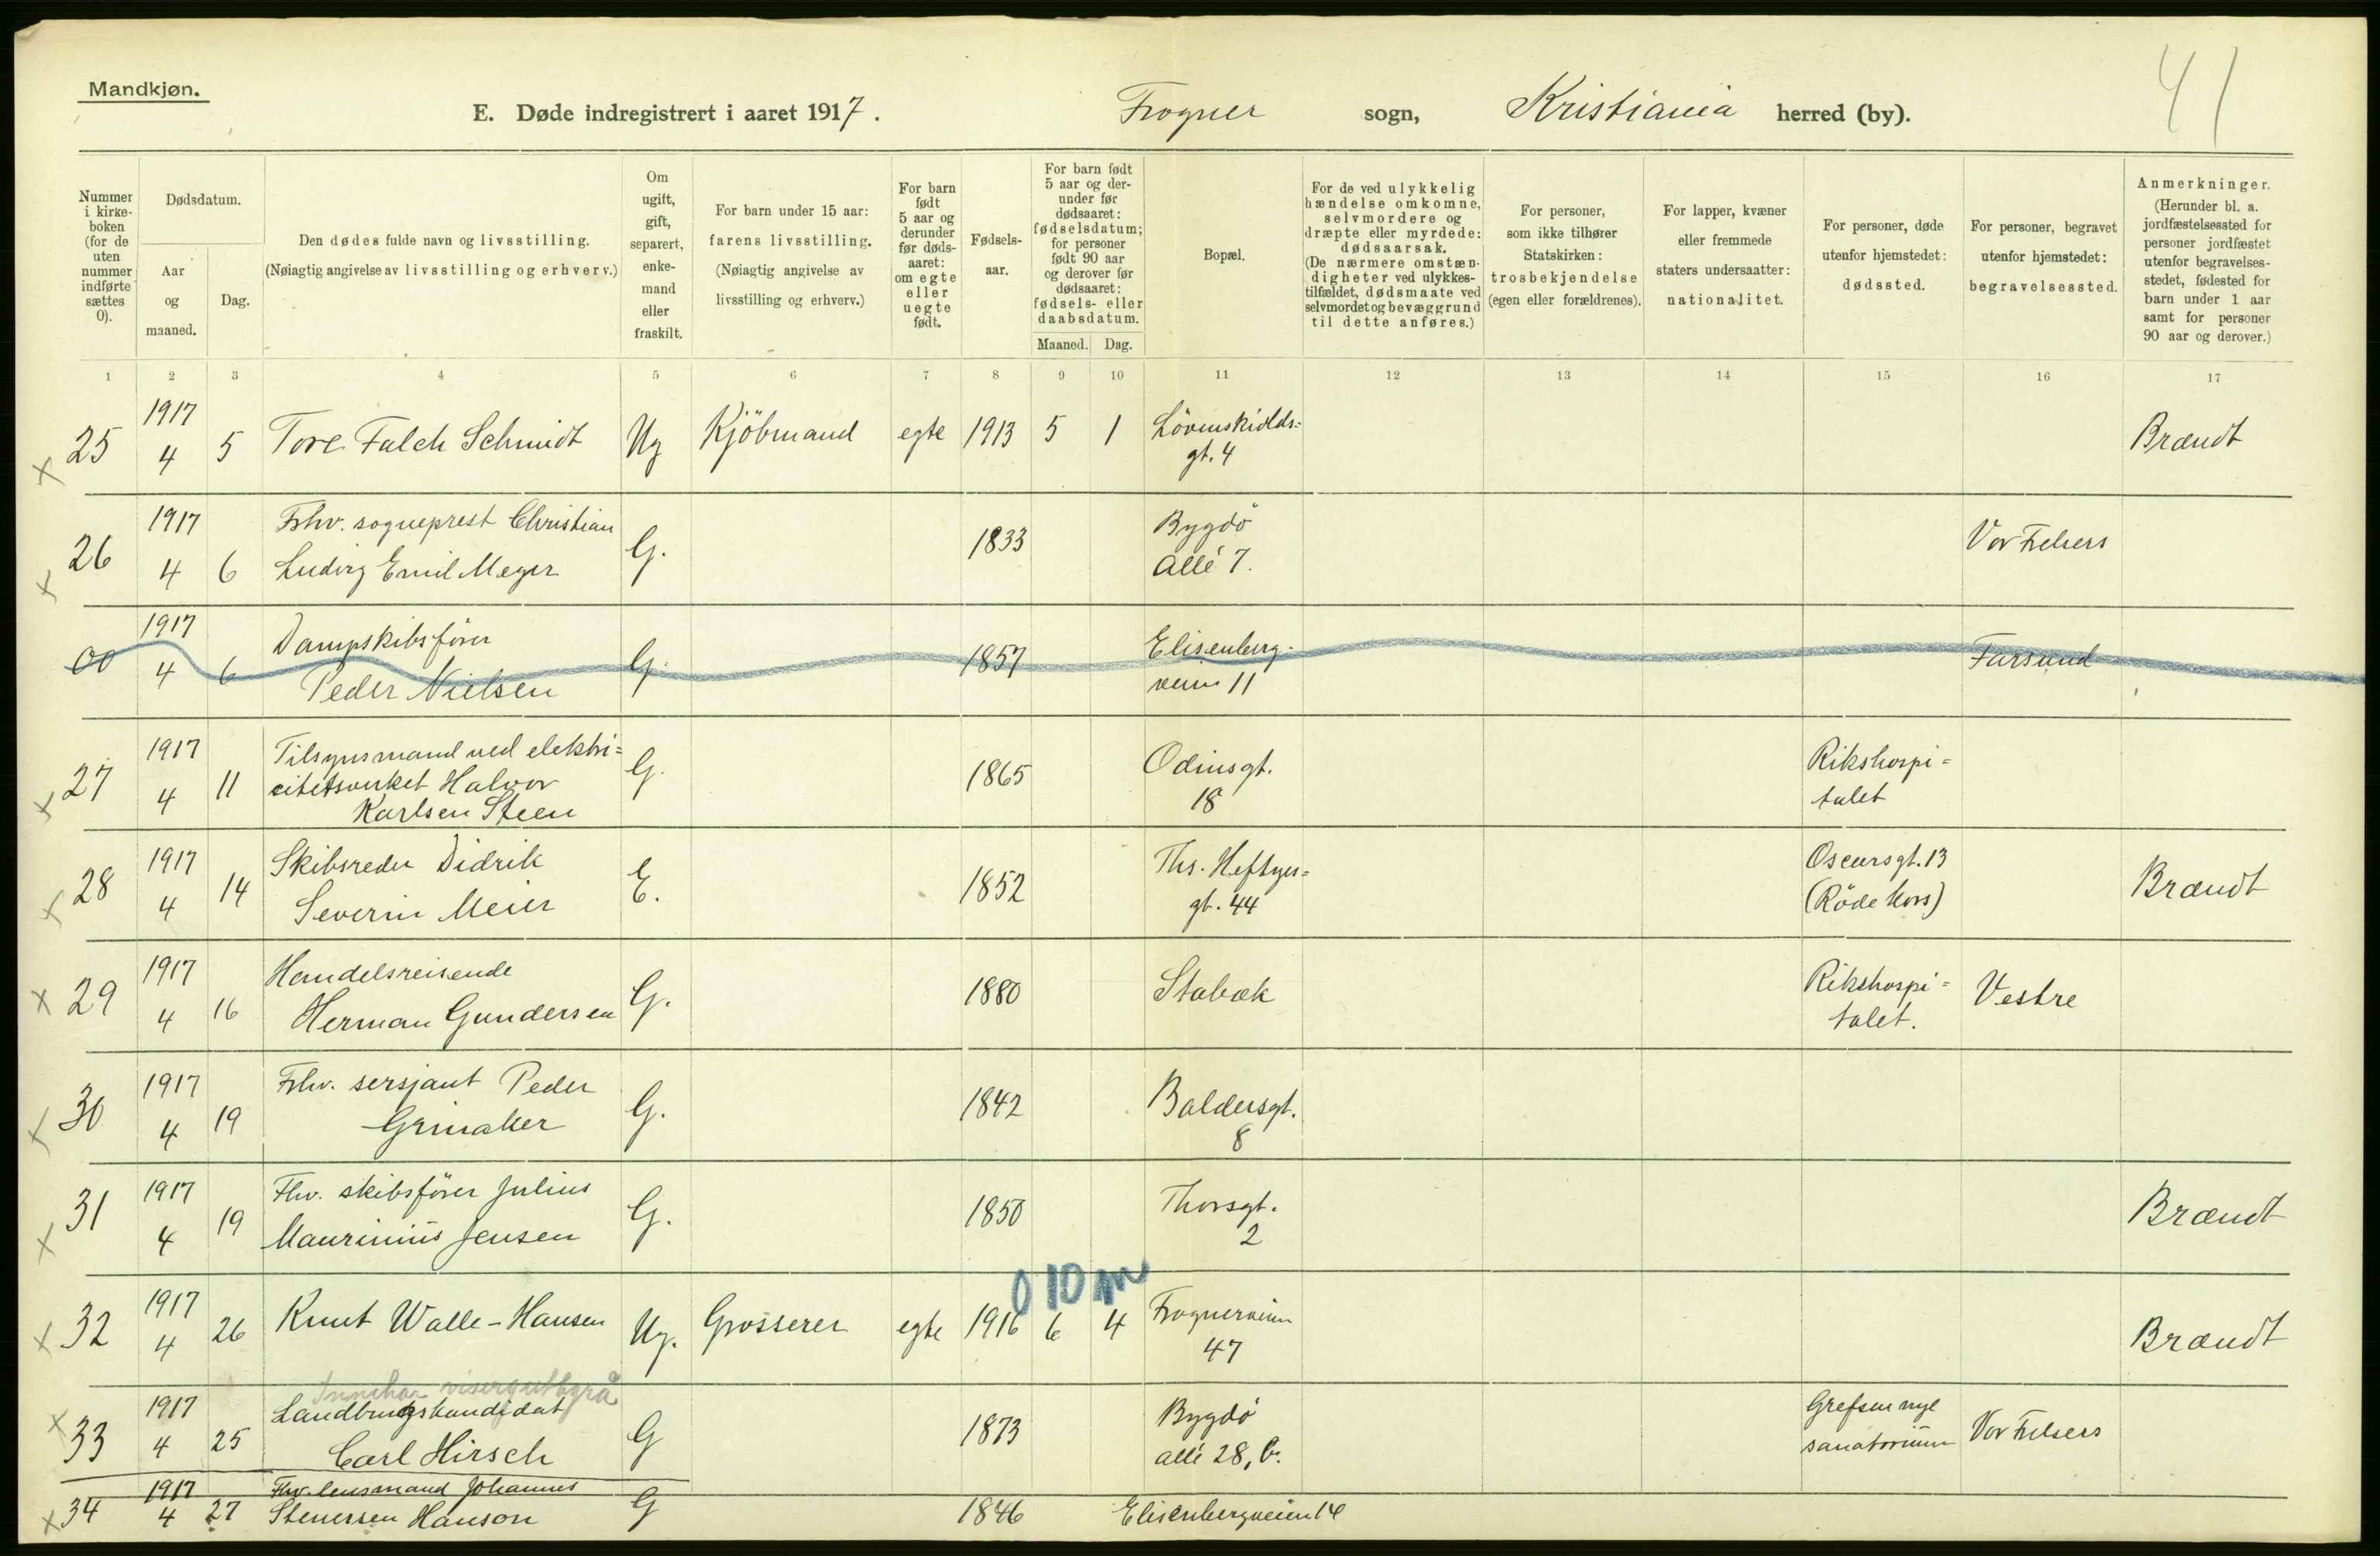 Mandkjøn.
E. Døde indregistrert i aaret 1917. Frogner sogn, Kristiania herred (by).
41
Nummer i kirke-boken (for de uten nummer indførte sættes 0).
Dødsdatum.
Aar og maaned.
Dag.
Den dødes fulde navn og livsstilling.
(Nøiagtig angivelse av livsstilling og erhverv.)
Om ugift, gift, separert, enke-mand eller fraskilt.
For barn under 15 aar: farens livsstilling.
(Nøiagtig angivelse av livsstilling og erhverv.)
For barn født 5 aar og derunder før døds-aaret: om egte eller uegte født.
Fødsels-aar.
For barn født 5 aar og der-under før dødsaaret: fødselsdatum; for personer født 90 aar og derover før dødsaaret: fødsels- eller daabsdatum.
Maaned. Dag.
Bopæl.
For de ved ulykkelig hændelse omkomne, selvmordere og dræpte eller myrdede: dødsaarsak.
(De nærmere omstæn-digheter ved ulykkes-tilfældet, dødsmaate ved selvmordet og bevæggrund til dette anføres.)
For personer, som ikke tilhører Statskirken: trosbekjendelse (egen eller forældrenes).
For lapper, kvæner eller fremmede staters undersaatter: nationalitet.
For personer, døde utenfor hjemstedet: dødssted.
For personer, begravet utenfor hjemstedet: begravelsessted.
Anmerkninger.
(Herunder bl. a. jordfæstelsessted for personer jordfæstet utenfor begravelses-stedet, fødested for barn under 1 aar samt for personer 90 aar og derover.)
1 2 3 4 5 6 7 8 9 10 11 12 13 14 15 16 17
x 25 1917 4 5 Tore Falch Schmidt Ug Kjöbmand egte 1913 5 1 Lövenskiolds=
gt. 4 Brændt
x 26 1917 4 6 Fhv. sogneprest Christian
Ludvig Emil Meyer G. 1833 Bygdö
Allé 7. Vor Frelsers
00 1917 4 6 Dampskibsförer
Peder Nielsen G. 1857 Elisenberg-
veien 11 Farsund
x 27 1917 4 11 Tilsynsmand ved elektri=
citetsverket Halvor
Karlsen Steen G. 1865 Odinsgt.
18 Rikshospi=
talet
x 28 1917 4 14 Skibsreder Didrik
Severin Meier E. 1852 Ths. Heftyes=
gt. 44 Oscarsgt. 13
(Röde Kors) Brændt
x 29 1917 4 16 Handelsreisende
Herman Gundersen G. 1880 Stabæk Rikshospi=
talet. Vestre
x 30 1917 4 19 Fhv. sersjant Peder
Grinaker G. 1842 Baldersgt.
8
x 31 1917 4 19 Fhv. skibsförer Julius
Maurinius Jensen G. 1850 Thorsgt.
2 Brændt
0 10 m
x 32 1917 4 26 Knut Walle-Hansen Ug. Grosserer egte 1916 6 4 Frognerveien
47 Brændt
Innehar visergutbyrå
x 33 1917 4 25 Landbrugskandidat
Carl Hirsch G 1873 Bygdö
allé 28, b. Grefsen nye
sanatorium Vor Frelsers
x 34 1917 4 27 Fhv. lensmand Johannes
Stenersen Hanson G 1846 Elisenbergveien 14